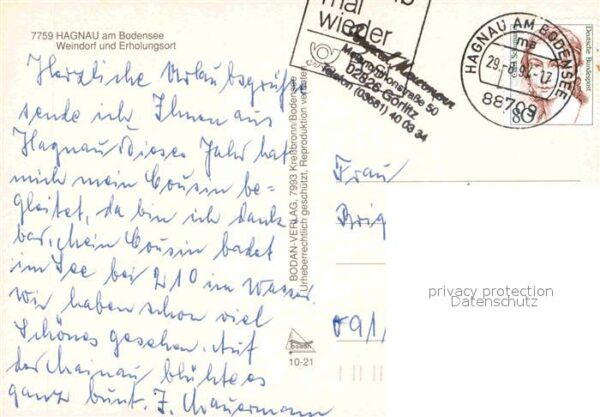 7759 HAGNAU am Bodensee
Weindorf und Erholungsort
Herzliche Urlaubsgrüße
sende ich Ihnen aus
Hagnau, dieses Jahr hat
mich mein Cousin be-
gleitet, da bin ich dank
bar. Mein Cousin badet
im See bei 21° im Wasser.
Wir haben schon viel
Schönes gesehen. Auf
der Mainau blühte es
ganz bunt. J. Mauermann
BODAN-VERLAG, 7993 Kreßbronn/Bodensee
Urheberrechtlich geschützt, Reproduktion verboten
bodan
10-21
mal
wieder
Melanchthonstraße 50
02826 Görlitz
Telefon (03581) 40 03 34
HAGNAU AM BODENSEE
ma
88709
Deutsche Bundespost
80
Frau
Brig
091
privacy protection
Datenschutz